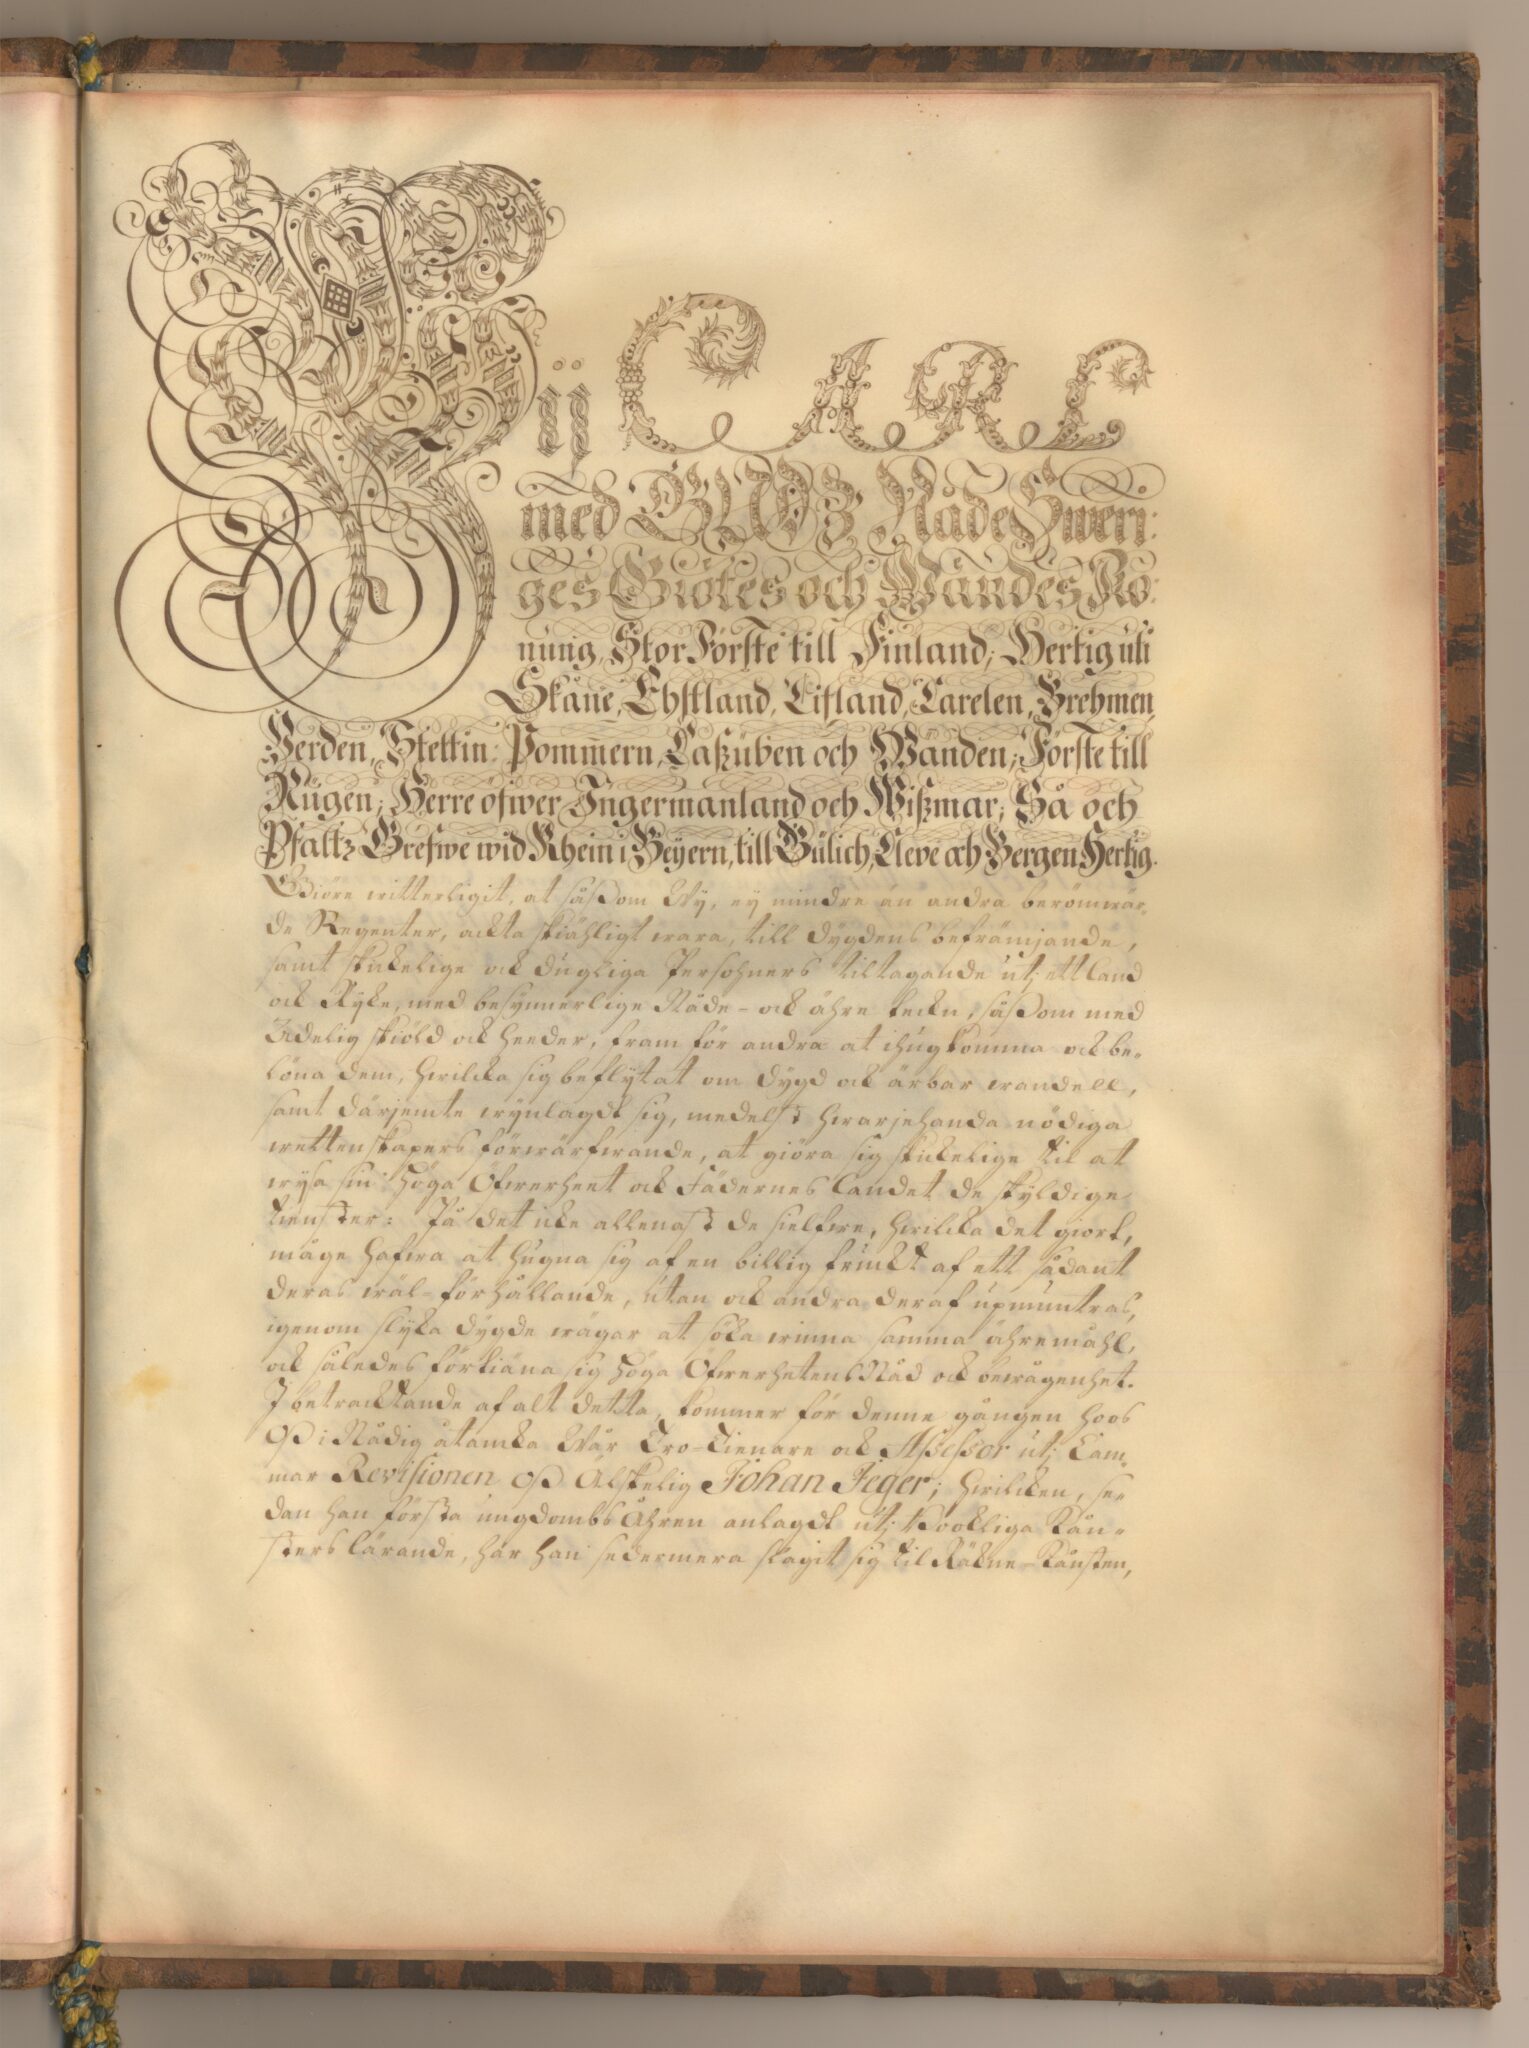 Wij CARL
med GUDZ Nåde Sweri:
ges Giötes och Wändes Ko:
nung, StorFörste till Finland, Hertig uti
Skåne, Ehstland, Lifland, Carelen, Brehmen,
Verden, Stettin: Pommern, Caßuben och Wänden, Förste till
Rügen, Herre öfwer Ingermanland och Wißmar; Så och
Pfaltz Grefwe wid Rhein i Beyern, till Gülich, Cleve och Bergen Hertig.
Giöre witterligit, at såssom Wy, ey mindre än andra berömwär-
de Regenter, ackta skiähligt wara, till dygdens befrämjande,
samt skickelige ock dugliga Persohners tiltagande utj ett Land
ock Ryke, med besynnerlige Nåde- ock ähre teckn, såssom med
Adelig skiöld ock heeder, fram för andra at ihugkomma ock be-
löna dem, hwilcka sig beflytat om dygd ock ärbar wandell,
samt därjemte wynlagdt sig, medelst hwarjehanda nödiga
wettenskapers förwärfwande, at giöra sig skickelige til at
wysa sin Höga Öfwerheet ock Fädernes Landet de skyldige
tienster: På det icke allenast de sielfwe, hwilcka det giort,
måge hafwa at hugna sig af en billig fruckt af ett sådant
deras wäl-förhållande, utan ock andra deraf upmuntras,
igenom slyka dygde wägar at söka winna samma ähremåhl,
ock således förtiäna sig Höga Öfwerhetens Nåd ock bewågenhet.
I betracktande af alt detta, kommer för denne gången hoos
Oss i Nådig åtancka Wår Tro-Tienare ock Assessor utj Cam-
mar Revisionen Oss Älskelig Johan Jeger; hwilcken, se-
dan han första ungdombs Åhren anlagdt utj Bookliga Kån-
sters lärande, har han sedermera slagit sig til Räkne-Kånsten,